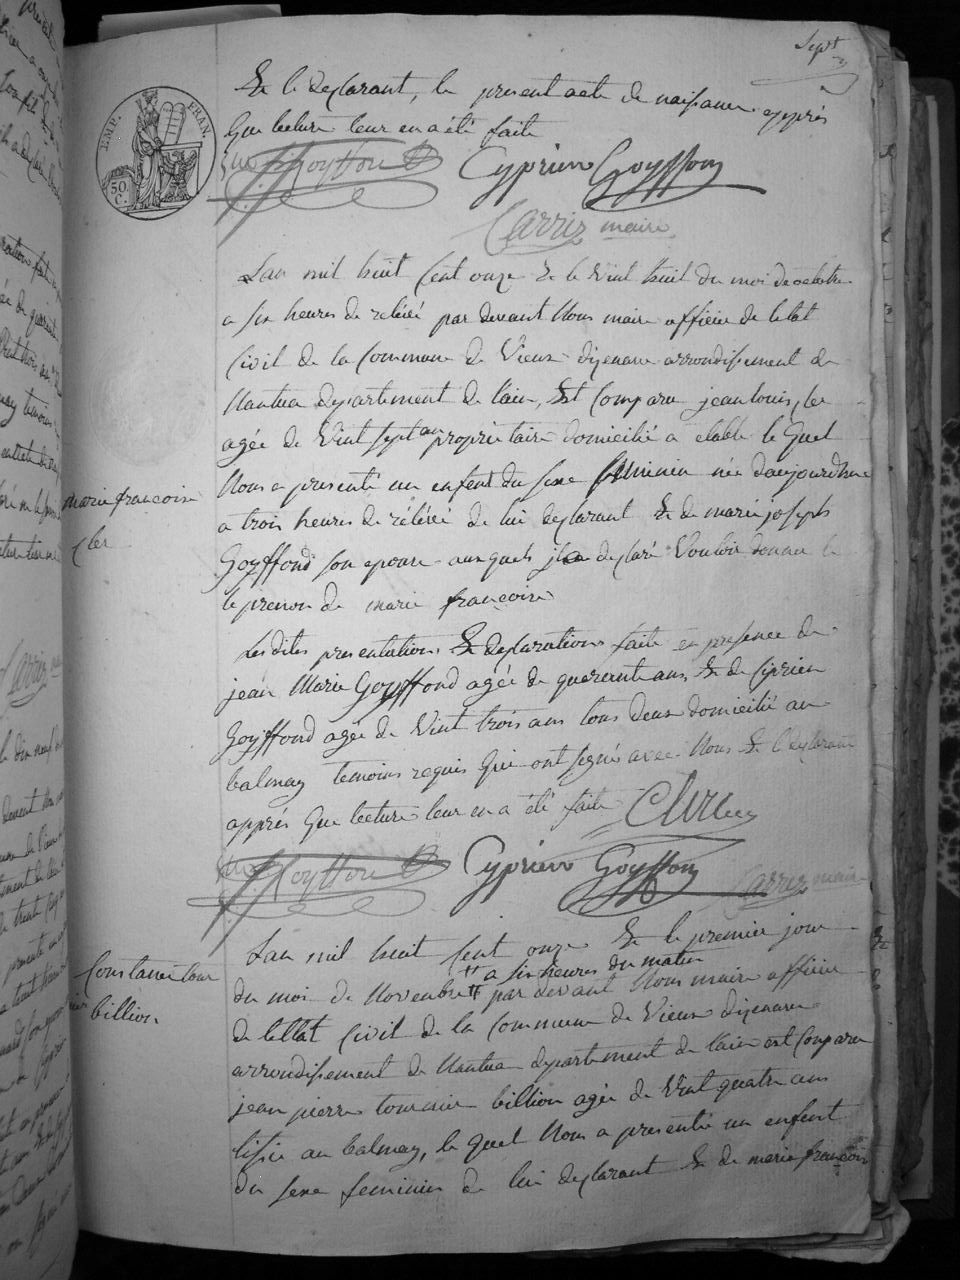 Sept
EMP. FRAN.
50. C.
& le declarant, le present acte de naissance apprés
que lecture leur en a été faite
Goyffond Cyprien Goyffon
Carrier maire
Lan mil huit Cent onze & le vint huit du moi de octobre
a six heures de relévé par devant Nous maire officier de letat
Civil de la Commune de Vieux dizenave arrondissement de
Nantua departement de lain, Est Comparu jean louis, cler
agée de vint sept an proprietaire domicilié a etable le quel
Nous a presenté un enfent du sexe feminin née daujourdhui
a trois heures de rélévé de lui declarant & de marie joseph
Goyffond son epouse auxquels il a declaré Vouloir donner le
le prenon de marie françoise
marie françoise
Cler
Lesdites presentations & declarations faite en presence de
jean Marie Goyffond agée de querente ans & de siprien
Goyffond agée de vint trois ans tous deux domicilié au
balmay temoins requis qui ont signés avec Nous & le declarant
apprés que lecture leur en a été faite Clerc
Goyffond Cyprien Goyffon Carrier maire
Lan mil huit Cent onze & le premier jour
a six heures du matin
du moi de Novembre par devant Nous maire officier
Constance tour
nier
billion
de letat Civil de la Commune de Vieux dizenave
arrondissement de Nantua departement de lain est Comparu
jean pierre tournier billion agée de vint quatre ans
au balmay, le quel Nous a presentée un enfent
du sexe feminin de lui declarant & de marie françoise